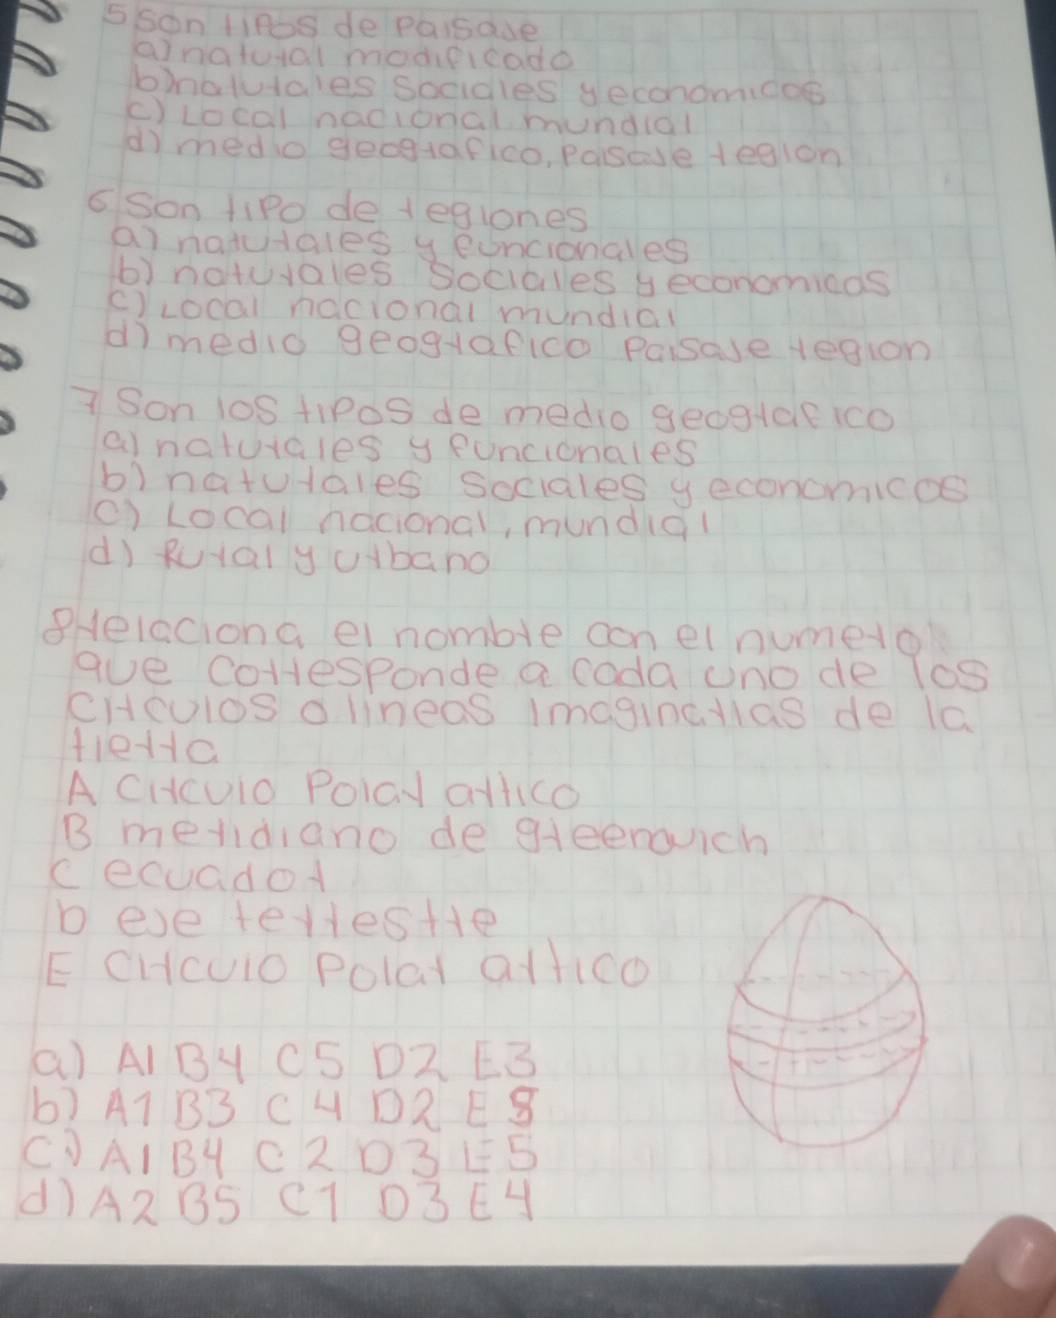 5 son tipos de paisaje
a) natural modificado
b) naturales sociales y economicos
c) Local nacional mundial
d) medio geografico, paisaje region
6 son tipo de regiones
a) naturales y funcionales
b) naturales sociales y economicas
c) Local nacional mundial
d) medio geografico paisaje region
7 Son los tipos de medio geografico
a) naturales y funcionales
b) naturales sociales y economicos
c) Local nacional, mundial
d) Rural y urbano
8 relaciona el nombre con el numero
que corresponde a cada uno de los
circulos o lineas imaginarias de la
tierra
A circulo Polar artico
B meridiano de greenwich
C ecuador
D eje terrestre
E circulo Polar artico
a) A1 B4 C5 D2 E3
b) A1 B3 C4 D2 E5
c) A1 B4 C2 D3 E5
d) A2 B5 C1 D3 E4